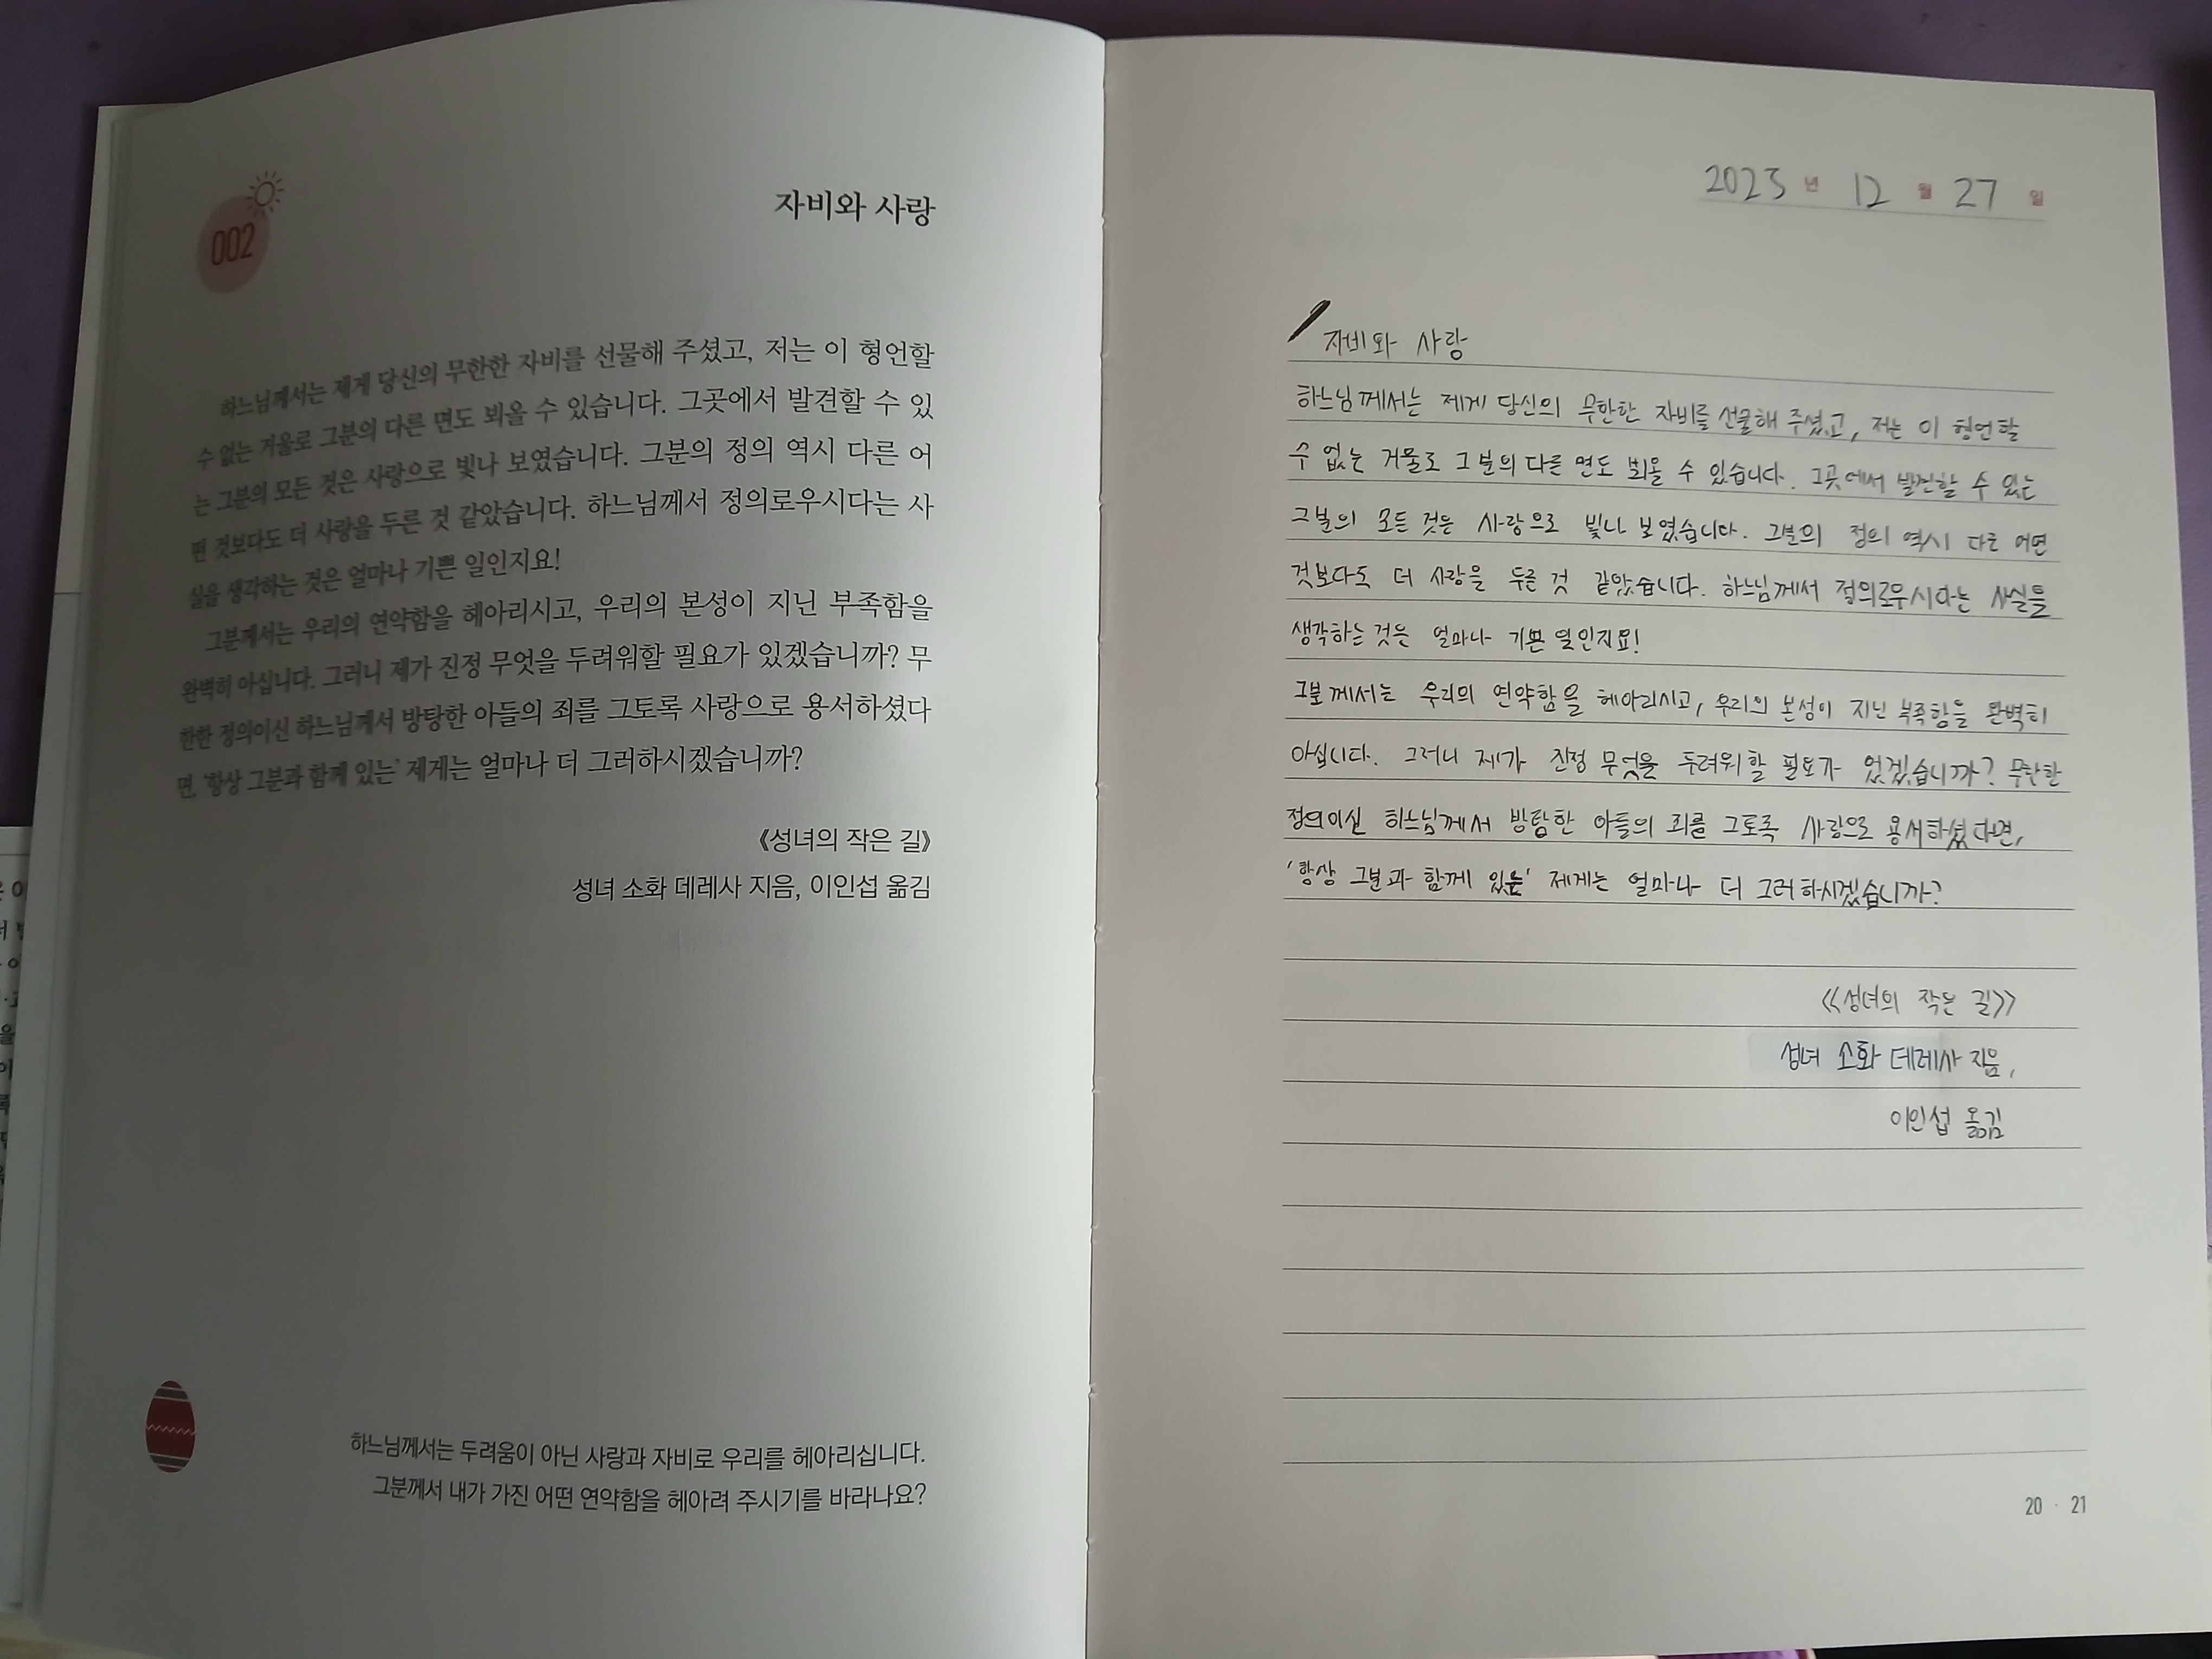 002
자비와 사랑
하느님께서는 제게 당신의 무한한 자비를 선물해 주셨고, 저는 이 형언할
수 없는 거울로 그분의 다른 면도 뵈올 수 있습니다. 그곳에서 발견할 수 있
는 그분의 모든 것은 사랑으로 빛나 보였습니다. 그분의 정의 역시 다른 어
떤 것보다도 더 사랑을 두른 것 같았습니다. 하느님께서 정의로우시다는 사
실을 생각하는 것은 얼마나 기쁜 일인지요!
그분께서는 우리의 연약함을 헤아리시고, 우리의 본성이 지닌 부족함을
완벽히 아십니다. 그러니 제가 진정 무엇을 두려워할 필요가 있겠습니까? 무
한한 정의이신 하느님께서 방탕한 아들의 죄를 그토록 사랑으로 용서하셨다
면, ‘항상 그분과 함께 있는’ 제게는 얼마나 더 그러하시겠습니까?
《성녀의 작은 길》
성녀 소화 데레사 지음, 이인섭 옮김
하느님께서는 두려움이 아닌 사랑과 자비로 우리를 헤아리십니다.
그분께서 내가 가진 어떤 연약함을 헤아려 주시기를 바라나요?
2025 년 12 월 27 일
자비와 사랑
하느님께서는 제게 당신의 무한한 자비를 선물해 주셨고, 저는 이 형언할
수 없는 거울로 그분의 다른 면도 뵈올 수 있습니다. 그곳에서 발견할 수 있는
그분의 모든 것은 사랑으로 빛나 보였습니다. 그분의 정의 역시 다른 어떤
것보다도 더 사랑을 두른 것 같았습니다. 하느님께서 정의로우시다는 사실을
생각하는 것은 얼마나 기쁜 일인지요!
그분께서는 우리의 연약함을 헤아리시고, 우리의 본성이 지닌 부족함을 완벽히
아십니다. 그러니 제가 진정 무엇을 두려워할 필요가 있겠습니까? 무한한
정의이신 하느님께서 방탕한 아들의 죄를 그토록 사랑으로 용서하셨다면,
‘항상 그분과 함께 있는’ 제게는 얼마나 더 그러하시겠습니까?
《성녀의 작은 길》
성녀 소화 데레사 지음,
이인섭 옮김
20 · 21